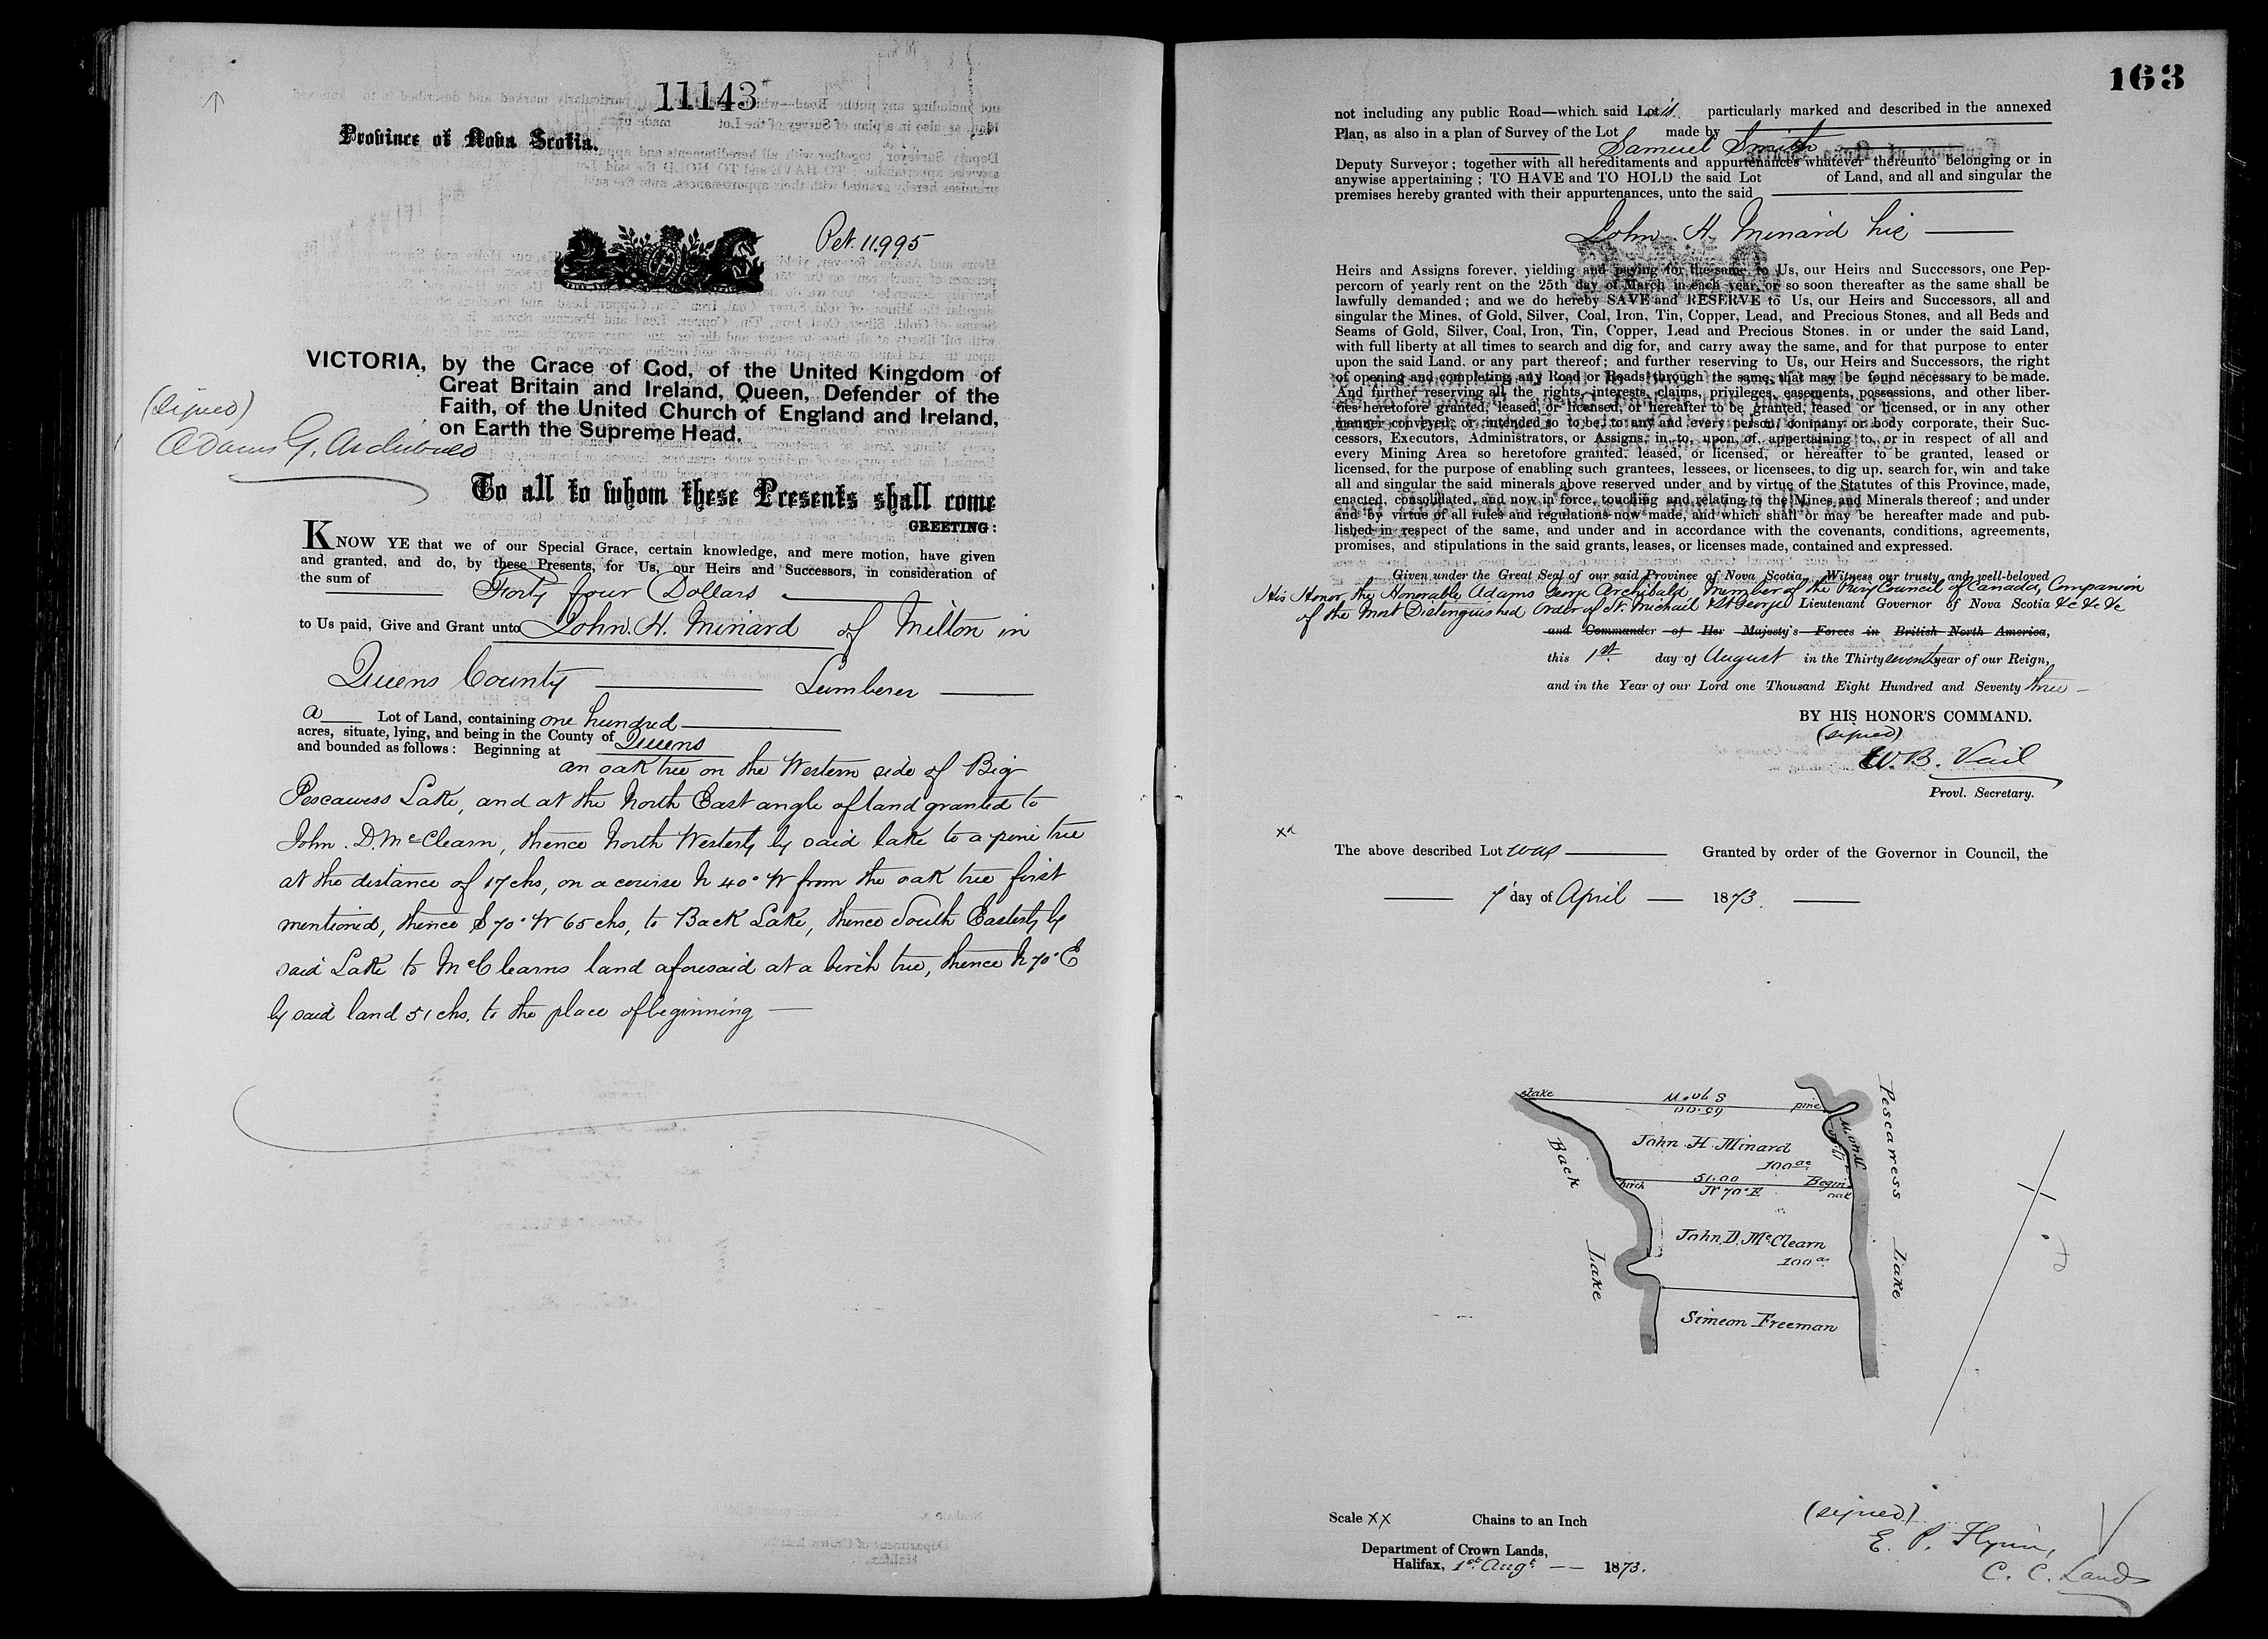 11143
Province of Nova Scotia.
Pet. 11.995
VICTORIA, by the Grace of God, of the United Kingdom of
Great Britain and Ireland, Queen, Defender of the
Faith, of the United Church of England and Ireland,
on Earth the Supreme Head.
(signed)
Adams G. Archibald
To all to whom these Presents shall come
GREETING:
KNOW YE that we of our Special Grace, certain knowledge, and mere motion, have given
and granted, and do, by these Presents, for Us, our Heirs and Successors, in consideration of
the sum of Forty four Dollars
to Us paid, Give and Grant unto John. H. Minard of Milton in
Queens County Lumberer
a Lot of Land, containing one hundred
acres, situate, lying, and being in the County of Queens
and bounded as follows: Beginning at
an oak tree on the Western side of Big
Pescawess Lake, and at the North East angle of land granted to
John. D. McClearn, thence North Westerly by said lake to a pine tree
at the distance of 17 chs, on a course N 40° W from the oak tree first
mentioned, thence S 70° W 65 chs, to Back Lake, thence South Easterly by
said Lake to McClearns land aforesaid at a birch tree, thence N 70° E
by said land 51 chs. to the place of beginning —
163
not including any public Road—which said Lot is particularly marked and described in the annexed
Plan, as also in a plan of Survey of the Lot made by
Samuel Smith
Deputy Surveyor; together with all hereditaments and appurtenances whatever thereunto belonging or in
anywise appertaining; TO HAVE and TO HOLD the said Lot of Land, and all and singular the
premises hereby granted with their appurtenances, unto the said
John. H. Minard his
Heirs and Assigns forever, yielding and paying for the same to Us, our Heirs and Successors, one Pep-
percorn of yearly rent on the 25th day of March in each year, or so soon thereafter as the same shall be
lawfully demanded; and we do hereby SAVE and RESERVE to Us, our Heirs and Successors, all and
singular the Mines, of Gold, Silver, Coal, Iron, Tin, Copper, Lead, and Precious Stones, and all Beds and
Seams of Gold, Silver, Coal, Iron, Tin, Copper, Lead and Precious Stones. in or under the said Land,
with full liberty at all times to search and dig for, and carry away the same, and for that purpose to enter
upon the said Land. or any part thereof; and further reserving to Us, our Heirs and Successors, the right
of opening and completing any Road or Roads through the same, that may be found necessary to be made.
And further reserving all the rights, interests, claims, privileges, easements, possessions, and other liber-
ties heretofore granted, leased, or licensed, or hereafter to be granted, leased or licensed, or in any other
manner conveyed, or intended so to be, to any and every person, company or body corporate, their Suc-
cessors, Executors, Administrators, or Assigns, in, to, upon, of, appertaining to, or in respect of all and
every Mining Area so heretofore granted, leased, or licensed, or hereafter to be granted, leased or
licensed, for the purpose of enabling such grantees, lessees, or licensees, to dig up, search for, win and take
all and singular the said minerals above reserved under and by virtue of the Statutes of this Province, made,
enacted, consolidated, and now in force, touching and relating to the Mines and Minerals thereof; and under
and by virtue of all rules and regulations now made, and which shall or may be hereafter made and pub-
lished in respect of the same, and under and in accordance with the covenants, conditions, agreements,
promises, and stipulations in the said grants, leases, or licenses made, contained and expressed.
Given under the Great Seal of our said Province of Nova Scotia. Witness our trusty and well-beloved
His Honor the Honorable Adams George Archibald Member of the Privy Council of Canada, Companion
of the Most Distinguished order of St. Michael & St George Lieutenant Governor of Nova Scotia &c &c &c
and Commander of Her Majesty's Forces in British North America,
this 1st. day of August in the Thirty seventh year of our Reign,
and in the Year of our Lord one Thousand Eight Hundred and Seventy three —
BY HIS HONOR'S COMMAND.
(signed)
W. B. Vail
Provl. Secretary.
The above described Lot was Granted by order of the Governor in Council, the
7 day of April 1873.
stake
S 70° W
65.00
pine
Pescawess Lake
N 40° W
17.00
John. H. Minard
100 ac
Back Lake
birch
51.00
N 70° E
Begin
oak
John. D. McClearn
100 ac
Simeon Freeman
Scale XX Chains to an Inch
Department of Crown Lands,
Halifax, 1st. Augt. 1873.
(signed)
E. P. Flynn,
C. C. Lands